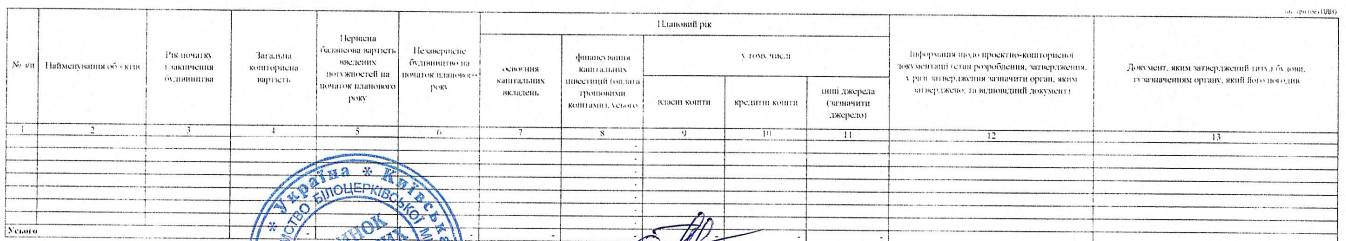 тис. грн (без ПДВ)
№ з/п
Найменування об'єктів
Рік початку
і закінчення
будівництва
Загальна
кошторисна
вартість
Первісна
балансова вартість
введених
потужностей на
початок планового
року
Незавершене
будівництво на
початок планового
року
Плановий рік
освоєння
капітальних
вкладень
фінансування
капітальних
інвестицій (оплата
грошовими
коштами), усього
у тому числі
власні кошти
кредитні кошти
інші джерела
(зазначити
джерело)
Інформація щодо проектно-кошторисної
документації (стан розроблення, затвердження,
у разі затвердження зазначити орган, яким
затверджено, та відповідний документ)
Документ, яким затверджений титул будови,
із зазначенням органу, який його погодив
1 2 3 4 5 6 7 8 9 10 11 12 13
-
-
-
-
-
-
-
Усього - - - - - - - -
* Україна * Київська
БІЛОЦЕРКІВСЬКОЇ М